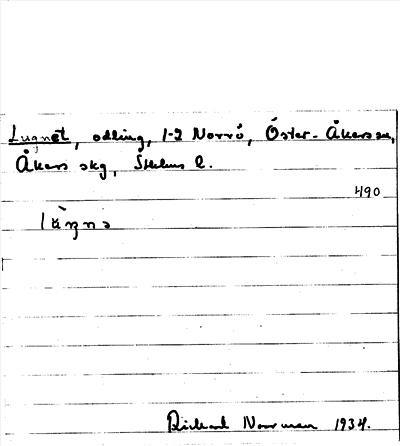 Lugnet, odling, 1-2 Norrö, Öster-Åkers sn,
Åkers skg, Sthlms l.
490
Richard Norrman 1934.